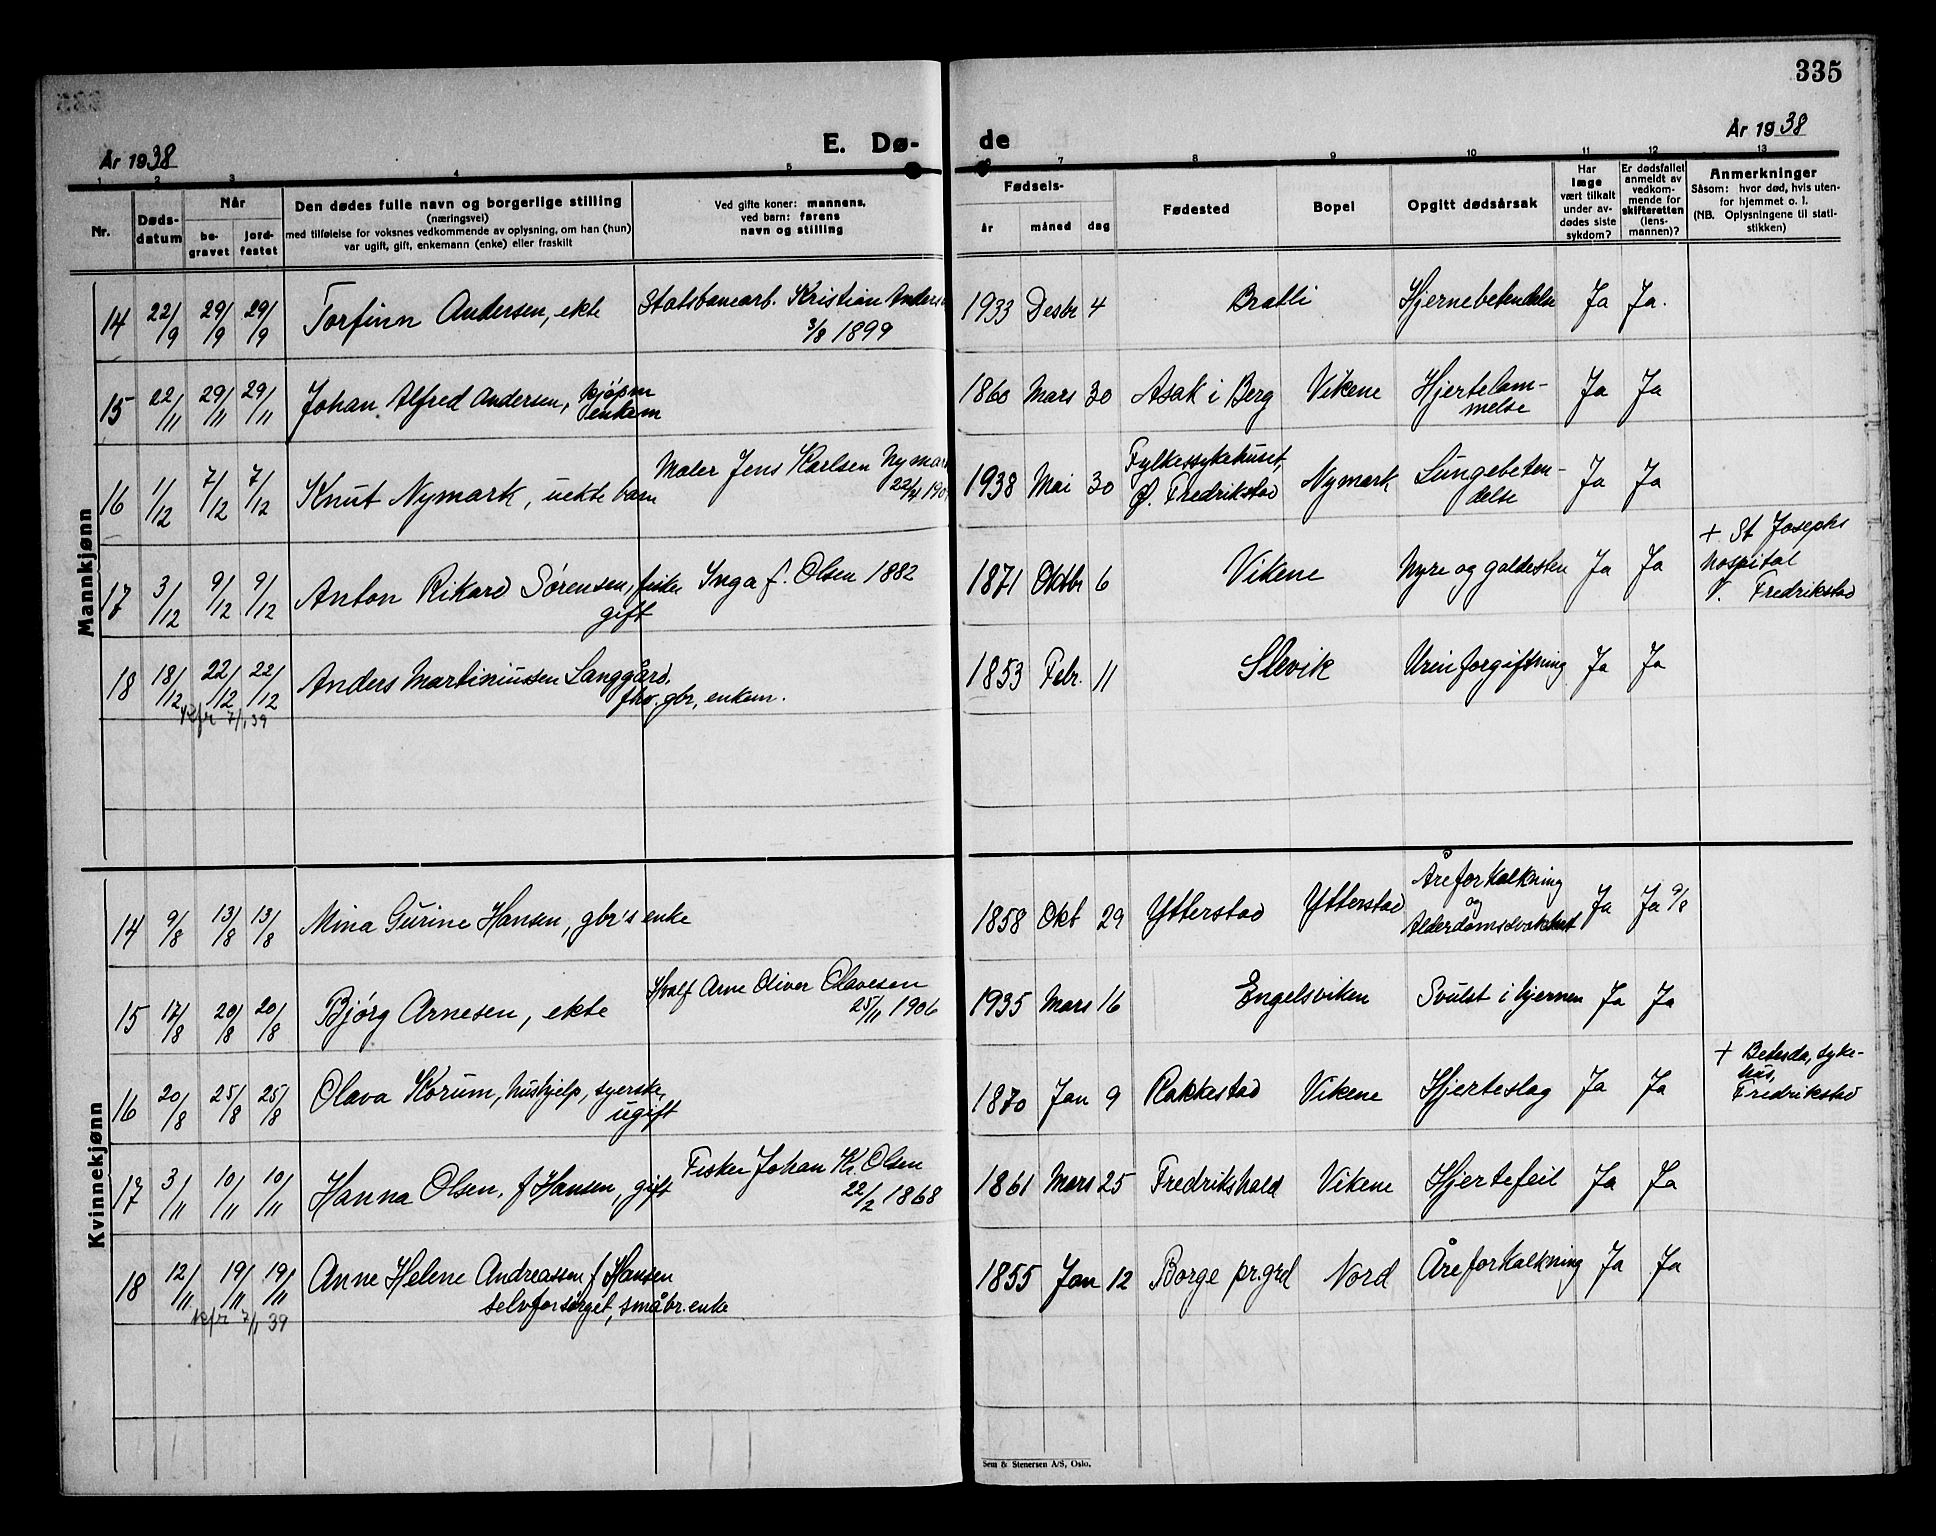 335
År 1938
E. Dø-
de
År 1938
1 2 3 4 5 6 7 8 9 10 11 12 13
Nr.
Døds-
datum
Når
be-
gravet
jord-
festet
Den dødes fulle navn og borgerlige stilling
(næringsvei)
med tilføielse for voksnes vedkommende av oplysning, om han (hun)
var ugift, gift, enkemann (enke) eller fraskilt
Ved gifte koner: mannens,
ved barn: farens
navn og stilling
Fødsels-
år måned dag
Fødested
Bopel
Opgitt dødsårsak
Har
læge
vært tilkalt
under av-
dødes siste
sykdom?
Er dødsfallet
anmeldt av
vedkom-
mende for
skifteretten
(lens-
mannen)?
Anmerkninger
Såsom: hvor død, hvis uten-
for hjemmet o. l.
(NB. Oplysningene til stati-
stikken)
Mannkjønn
14 22/9 29/9 29/9 Torfinn Andersen, ekte Statsbanearb. Kristian Anders
3/8 1899
1933 Desbr 4 Bratli Hjernebetendelse Ja Ja.
15 22/11 29/11 29/11 Johan Alfred Andersen, kjøpm
enkem
1860 Mars 30 Asak i Berg Vikene Hjertelam-
melse
Ja Ja
16 1/12 7/12 7/12 Knut Nymark, uekte barn Maler Jens Karlsen Nymark
22/4 190
1938 Mai 30 Fylkessykehuset,
Ø. Fredrikstad
Nymark Lungebeten-
delse
Ja Ja
17 3/12 9/12 9/12 Anton Rikard Sørensen, fisker
gift
Inga f. Olsen 1882
1871 Oktbr 6 Vikene Nyre og galdesten Ja Ja + St Josephs
hospital
V. Fredrikstad
18 18/12 22/12 22/12 Anders Martiniussen Langgård,
fhv. gbr., enkem.
1853 Febr. 11 Slevik Urinforgiftning Ja Ja
kfr 7/1 39
Kvinnekjønn
14 9/8 13/8 13/8 Mina Gurine Hansen, gbr's enke
1858 Okt 29 Ytterstad Ytterstad Åreforkalkning
og
Alderdomssvakhet
Ja Ja 9/8
15 17/8 20/8 20/8 Bjørg Arnesen, ekte Hvalf Arne Oliver Olavesen
25/11 1906
1935 Mars 16 Engelsviken Svulst i hjernen Ja Ja
16 20/8 25/8 25/8 Olava Korum, hushjelp, syerske,
ugift
1870 Jan 9 Rakkestad Vikene Hjerteslag Ja Ja + Betesda, syke-
hus,
Fredrikstad
17 3/11 10/11 10/11 Hanna Olsen, f Hansen, gift Fisker Johan Kr. Olsen
22/2 1868
1861 Mars 25 Fredrikshald Vikene Hjertefeil Ja Ja
18 12/11 19/11 19/11 Anne Helene Andreassen f Hansen
selvforsørget, småbr. enke
1855 Jan 12 Borge pr.grd Nord Åreforkalkning Ja Ja
kfr 7/1 39
Sem & Stenersen A/S, Oslo.